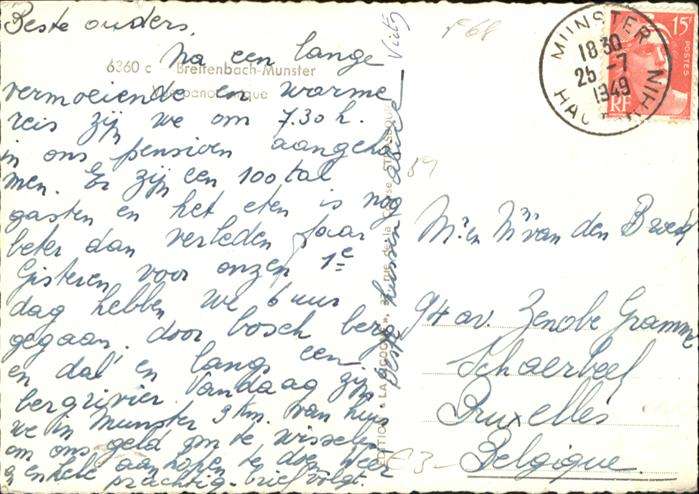 Beste ouders,
Na een lange
6360 c Breitenbach-Munster
vermoeiende en warme
panoramique
reis zijn we om 7.30 h.
in ons pension aangeko
men. Er zijn een 100 tal
gasten en het eten is nog
beter dan verleden jaar
Gisteren voor onzen 1e
dag hebben we 6 uur
gegaan, door bosch berg
en dal en langs een
bergrivier. Vandaag zijn
we in Munster 3 km. van huis
om ons geld om te wisselen
en enkele aankopen te doen. Weer
prachtig. brief volgt.
Beste kussen
EDITIONS « LA CIGOGNE », rue de la
F68
59
MUNSTER
1830
25 -7
1949
HAUT RHIN
15F
POSTES
RF
Mr en Mme van den Broeck
94 av. Zenobe Gramme
Schaerbeek
Bruxelles
Belgique.
C3-